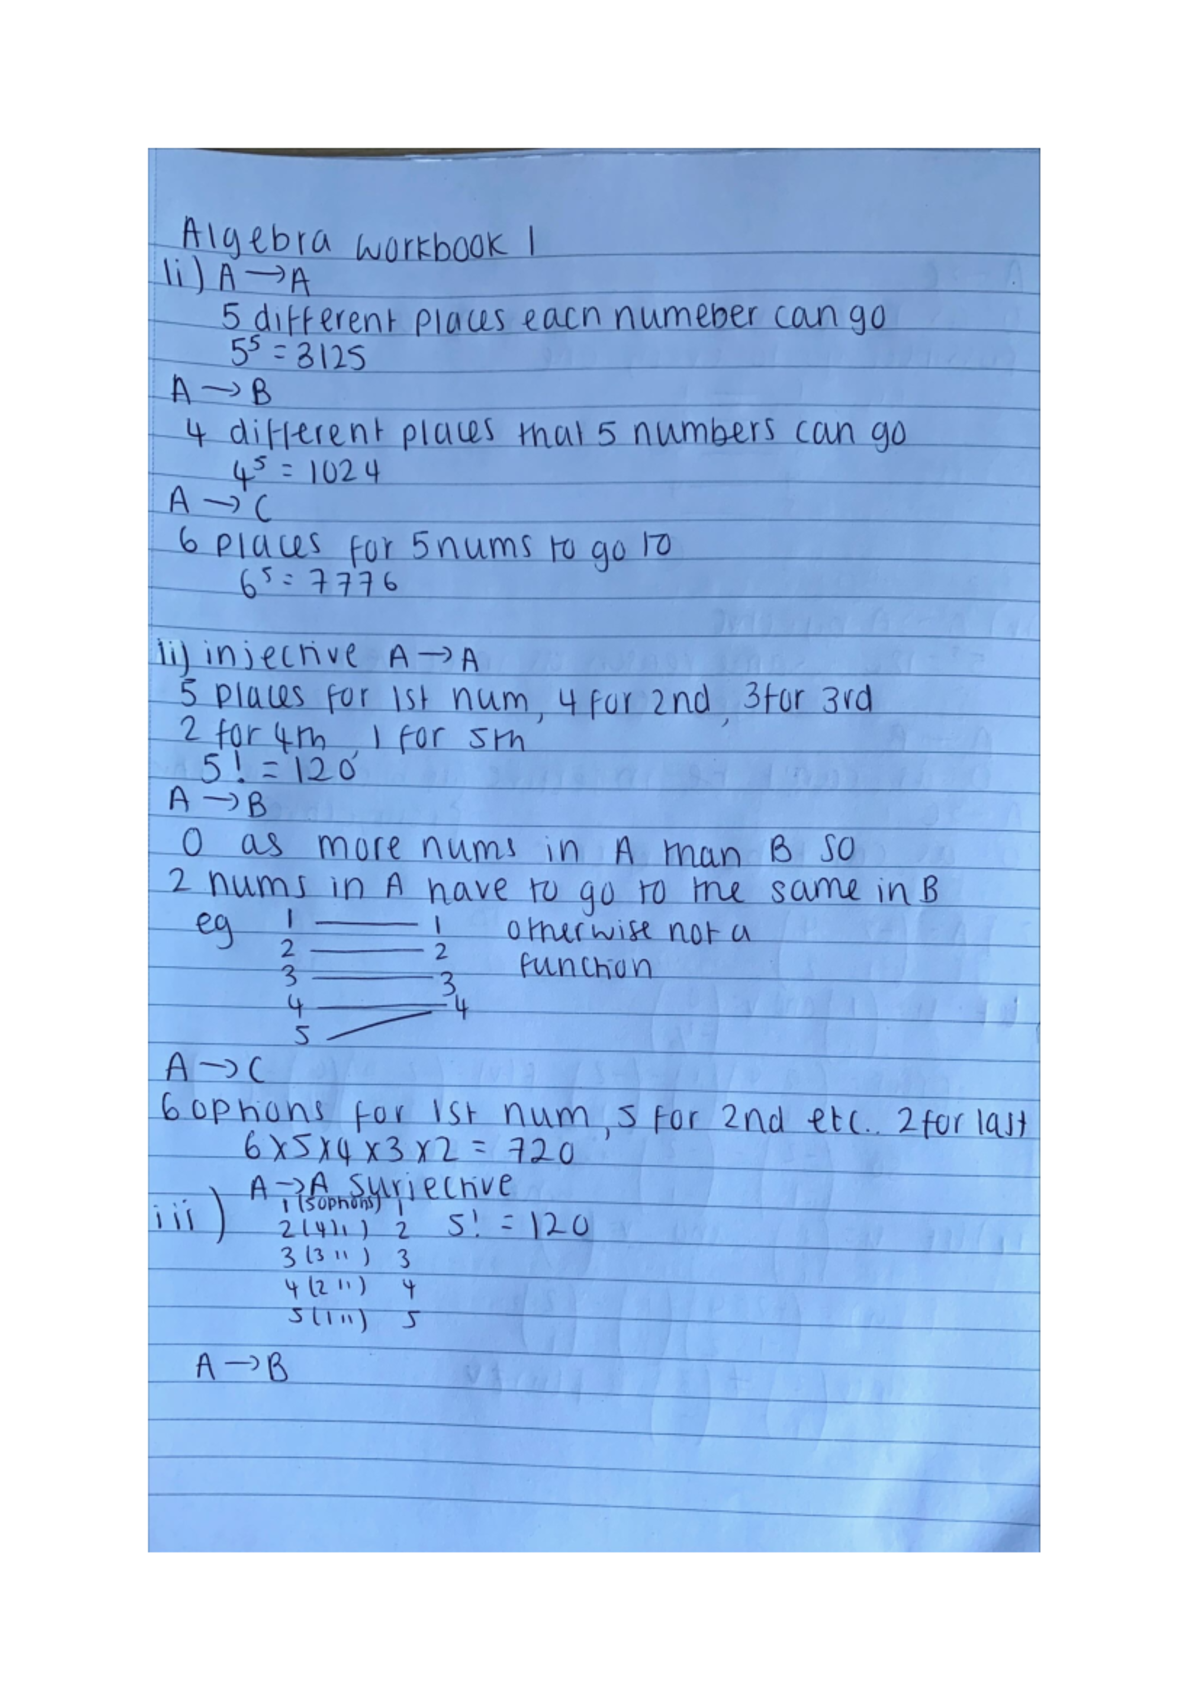 Algebra workbook 1
1i) A → A
5 different places each numeber can go
5⁵ = 3125
A → B
4 different places that 5 numbers can go
4⁵ = 1024
A → C
6 places for 5 nums to go to
6⁵ = 7776
ii) injective A → A
5 places for 1st num, 4 for 2nd, 3 for 3rd
2 for 4th, 1 for 5th
5! = 120
A → B
0 as more nums in A than B so
2 nums in A have to go to the same in B
eg 1 — 1 otherwise not a
2 — 2 function
3 — 3
4 — 4
5
A → C
6 options for 1st num, 5 for 2nd etc.. 2 for last
6 x 5 x 4 x 3 x 2 = 720
iii) A → A surjective
1 (5 options) 1
2 (4 ıı) 2 5! = 120
3 (3 ıı) 3
4 (2 ıı) 4
5 (1 ıı) 5
A → B